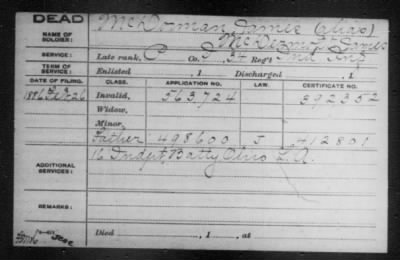 DEAD
NAME OF SOLDIER:
McDorman James (alias)
McDermott James
SERVICE:
Late rank, P Co. 34 Reg't Ind Inf
TERM OF SERVICE:
Enlisted , 1 Discharged , 1
DATE OF FILING. CLASS. APPLICATION NO. LAW. CERTIFICATE NO.
26 Invalid, 563.724 392352
Widow,
Minor,
Father 498600 J 412801
ADDITIONAL SERVICES:
16 Indpt Batty Ohio L. A.
REMARKS:
Died , 1 , at